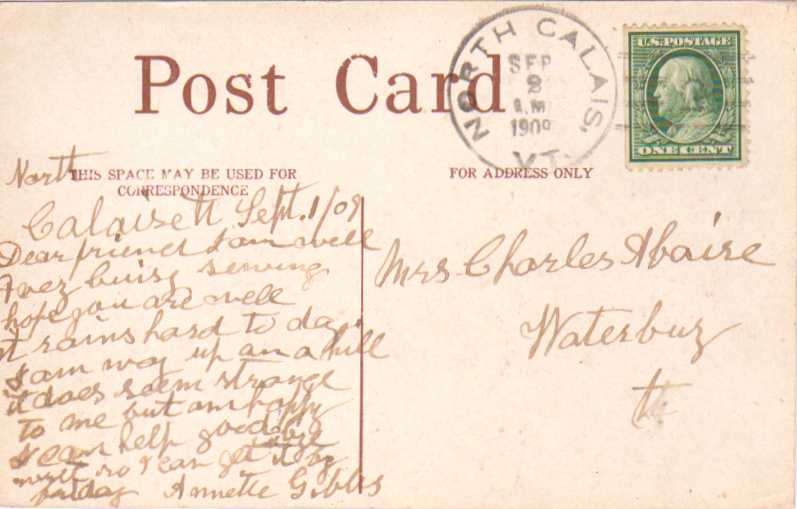 Post Card
NORTH CALAIS,
SEP
2
A.M
1909
VT.
U.S.POSTAGE
ONE CENT
THIS SPACE MAY BE USED FOR
CORRESPONDENCE
FOR ADDRESS ONLY
North
Calais Vt Sept. 1/09
Dear friend I am well
& very buisy sewing
hope you are well
it rains hard to day
I am way up on a hill
it does seem strange
to me but am happy
I can help goodbye
write so I can get it by
friday Annette Gibbs
Mrs Charles Abaire
Waterbury
Vt